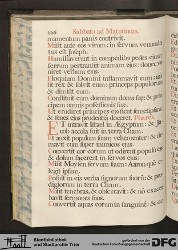 166 Sabbato ad Matutinum.
momentum panis contrivit.
Misit ante eos virum: in servum venumda-
tus est Joseph.
Humiliaverunt in compedibus pedes ejus:
ferrum pertransiit animam ejus: donec ve-
niret verbum ejus.
Eloquium Domini inflammavit eum: mi-
sit rex & solvit eum: princeps populorum,
& dimisit eum.
Constituit eum dominum domus suæ: & prin-
cipem omnis possessionis suæ.
Ut erudiret principes ejus sicut semetipsum:
& senes ejus prudentiam doceret.
Et intravit Israel in Ægyptum: & Ja-
cob accola fuit in terra Cham.
Et auxit populum suum vehementer: & fir-
mavit eum super inimicos ejus.
Convertit cor eorum ut odirent populum ejus:
& dolum facerent in servos ejus.
Misit Moysen servum suum: Aaron quem ele-
git ipsum.
Posuit in eis verba signorum suorum: & pro-
digiorum in terra Cham.
Misit tenebras, & obscuravit: & non exacer-
bavit sermones suos.
Convertit aquas eorum in sanguinem: & oc-
Stadtbibliothek
und Stadtarchiv Trier
gefördert von der
Deutschen Forschungsgemeinschaft
DFG